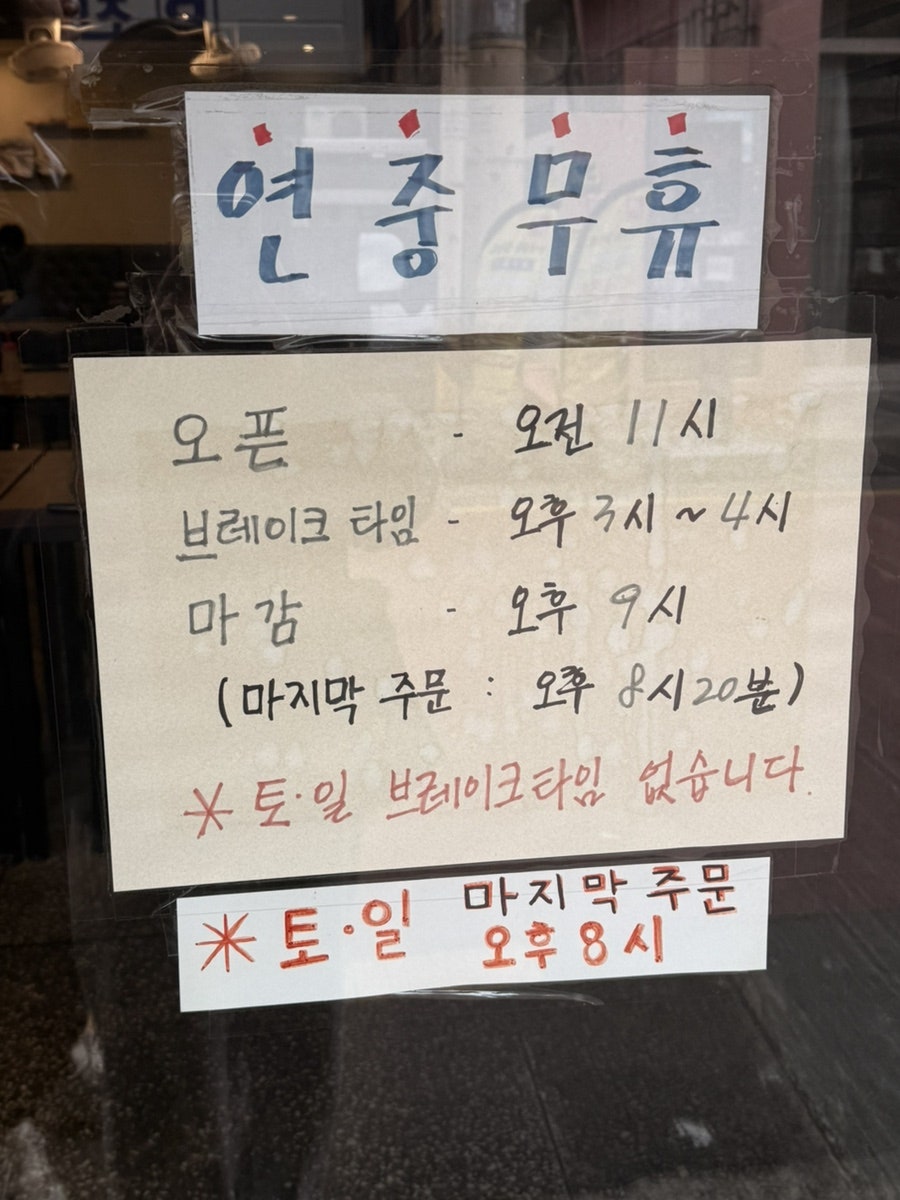 연중무휴
오픈 - 오전 11시
브레이크 타임 - 오후 3시 ~ 4시
마감 - 오후 9시
(마지막 주문 : 오후 8시 20분)
* 토·일 브레이크타임 없습니다.
* 토·일 마지막 주문
오후 8시